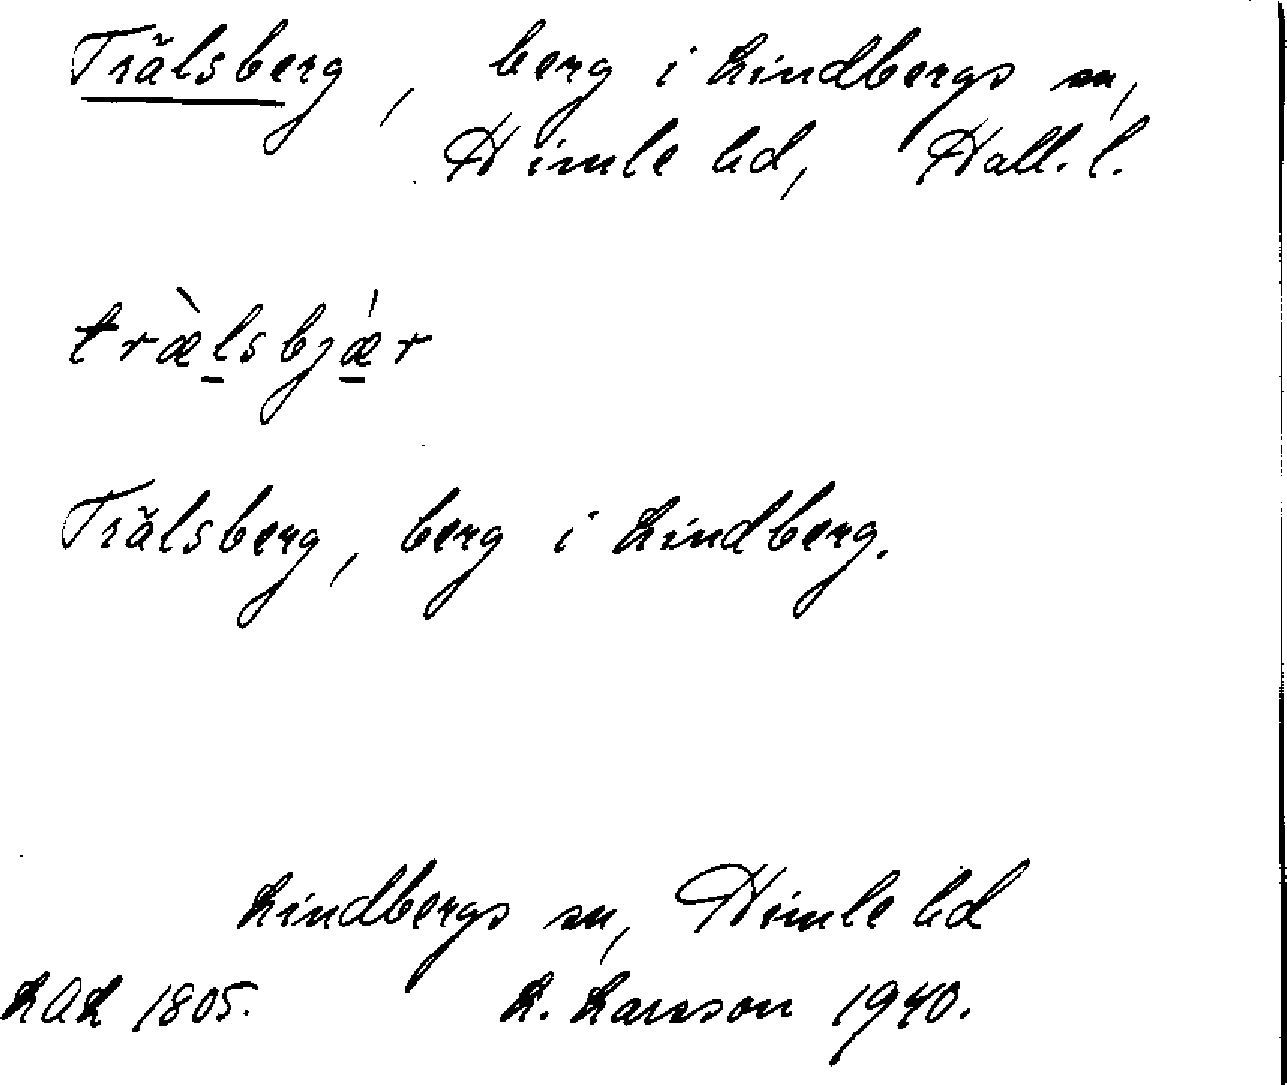 Trälsberg, berg i Lindbergs sn,
Himle hd, Hall. l.
træ̀lsbjǽr
Trälsberg, berg i Lindberg.
Lindbergs sn, Himle hd
LAL 1805. L. Larsson 1940.